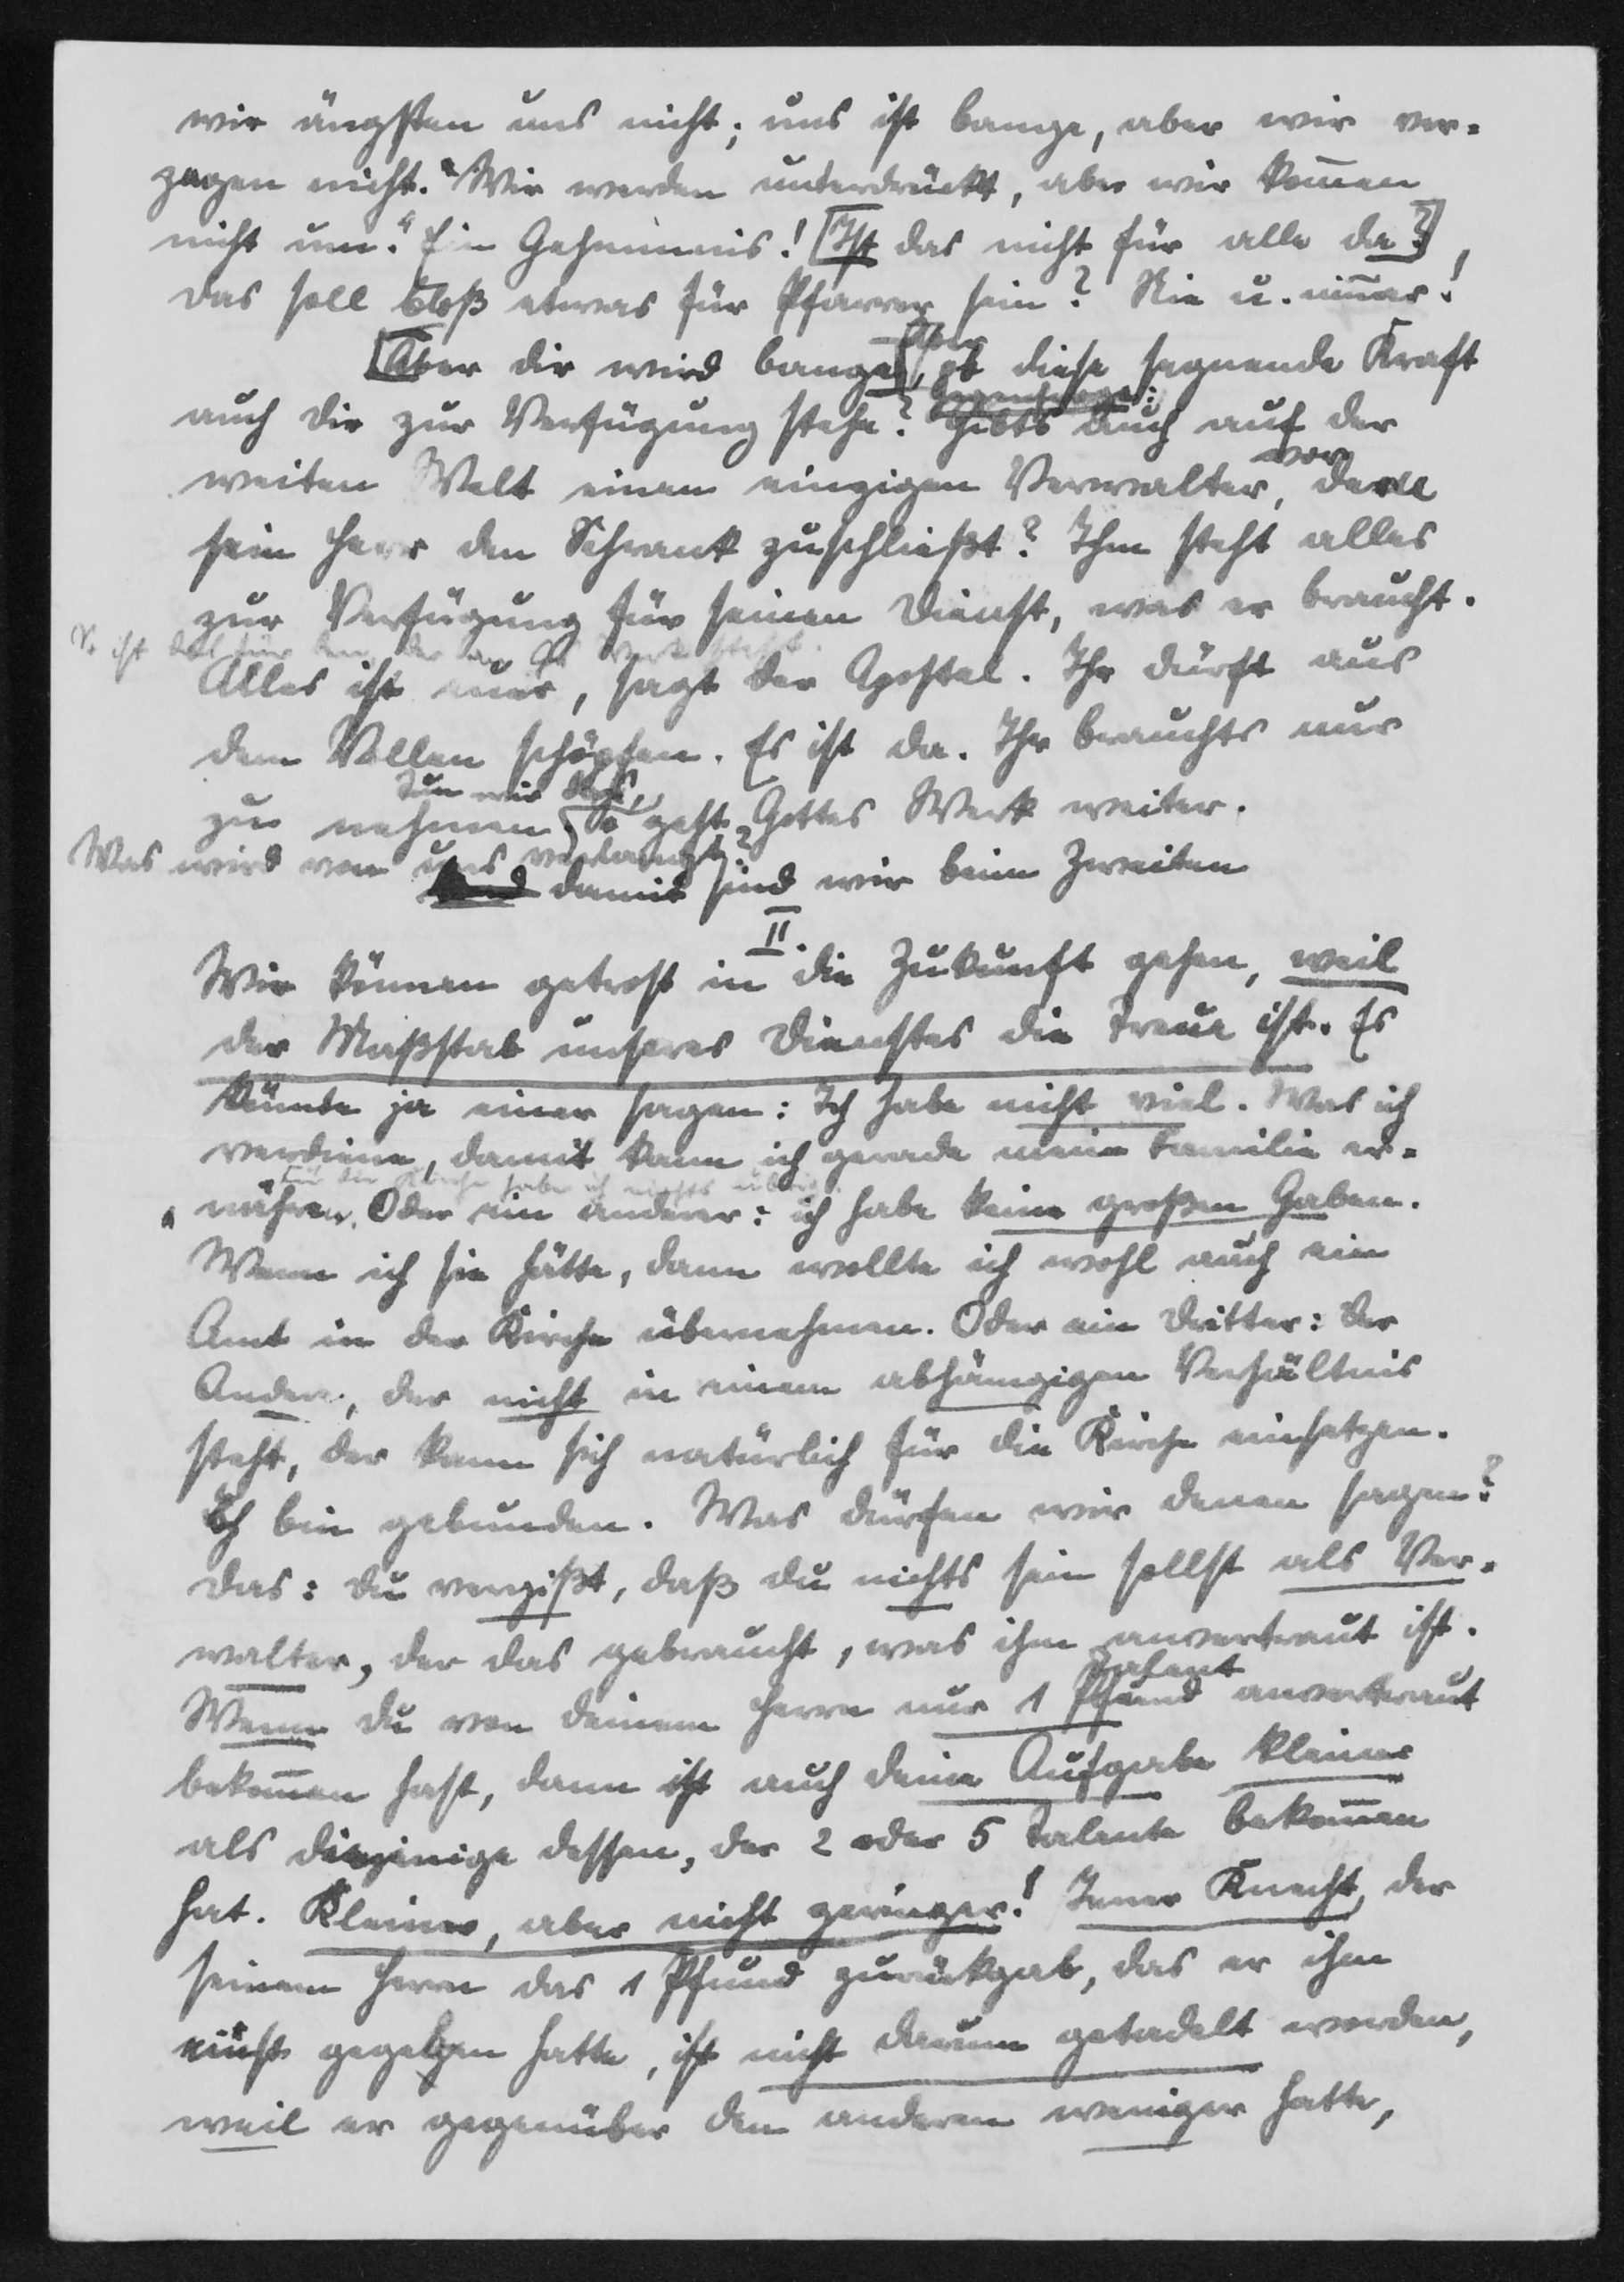 wir ängsten uns nicht; uns ist bange, aber wir ver-
zagen nicht. "Wir werden unterdrückt, aber wir kom̄en
nicht um." Ein Geheimnis! [Ist das nicht für alle da?]
das soll bloß etwas für Pfarrer sein? Nie u. nim̄er!
[Aber dir wird bange], ob diese segnende Kraft
Gegenfrage:
auch dir zur Verfügung stehe? Gibts auch auf der
vor
weiten Welt einen einzigen Verwalter, dem
sein Herr den Schrank zuschließt? Ihm steht alles
zur Verfügung für seinen Dienst, was er braucht.
So ist das für den, der an Werk steht.
Alles ist euer, sagt der Apostel. Ihr dürft aus
dem Vollen schöpfen. Es ist da. Ihr brauchts nur
Tun wir das,
zu nehmen. So geht Gottes Werk weiter.
Was wird von uns verlangt?
Und damit sind wir beim Zweiten
II.
Wir können getrost in die Zukunft gehen, weil
der Maßstab unseres Dienstes die Treue ist. Es
könnte ja einer sagen: Ich habe nicht viel. Was ich
verdiene, damit kann ich gerade meine Familie er-
Für die Kirche habe ich nichts übrig.
nähren. Oder ein anderer: ich habe keine großen Gaben.
Wenn ich sie hätte, dann wollte ich wohl auch ein
Amt in der Kirche übernehmen. Oder ein Dritter: Der
Andere, der nicht in einem abhängigen Verhältnis
steht, der kann sich natürlich für die Kirche einsetzen.
Ich bin gebunden. Was dürfen wir denen sagen?
Das: Du vergißt, daß du nichts sein sollst als Ver-
walter, der das gebraucht, was ihm anvertraut ist.
Talent
Wenn du von deinem Herrn nur 1 Pfund anvertraut
bekom̄en hast, dann ist auch deine Aufgabe kleiner
als diejenige dessen, der 2 oder 5 Talente bekom̄en
hat. Kleiner, aber nicht geringer! Jener Knecht, der
seinem Herrn das 1 Pfund zurückgab, das er ihm
einst gegeben hatte, ist nicht darum getadelt worden,
weil er gegenüber den anderen weniger hatte,